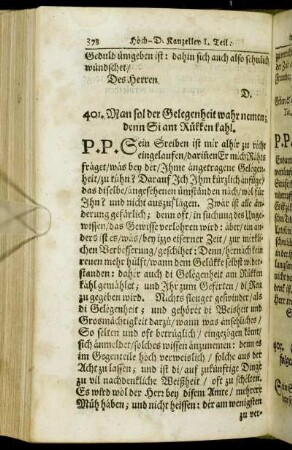 378 Hoch-D. Kanzelley I. Teil:
Geduld ümgeben ist: dahin sich auch also sehnlich
wündschet/
Des Herren
D.
401. Man sol der Gelegenheit wahr nemen;
denn Si am Rükken kahl.
P.P. Sein Sreiben ist mir alhir zu recht
eingelaufen/ darinen Er mich Rahts
fraget/ was bey der/ Ihme angetragene Gelegen-
heit/ zu tuhn? Darauf Ich Ihm kürzlich anfüge/
das diselbe/ angesehenen ümständen nach/ wol für
Ihn? und nicht auszuslagen. Zwar ist alle än-
derung gefärlich; denn oft/ in suchung des Unge-
wissen/ das Gewisse verlohren wird: aber/ ein an-
ders ist es/ was/ bey izo eiserner Zeit/ zur merkli-
chen Verbesserung/ geschihet: Denn/ hernach kein
reuen mehr hülft/ wann dem Gelükke selbst wider-
standen: daher auch di Gelegenheit am Rükken
kahl gemählet; und Ihr zum Geferten/ di Reu
zu gegeben wird. Nichts fleuget geswinder/ als
di Gelegenheit; und gehöret di Weisheit und
Grosmächtigkeit darzu/ wann was ansehliches/
So selten und oft verdräulich/ bezogen kömt/
sich anmeldet/ solches wissen anzunemen: denn es
im Gegenteile höch verweislich/ solche aus der
Acht zu lassen; und ist di/ auf zukünftige Dinge
zu vil nachdenkliche Weißheit/ oft zu schelten.
Es wird wol der Herr bey disem Amte/ mehrers
Müh haben; und nicht heissen: der am wenigsten
zu ver-